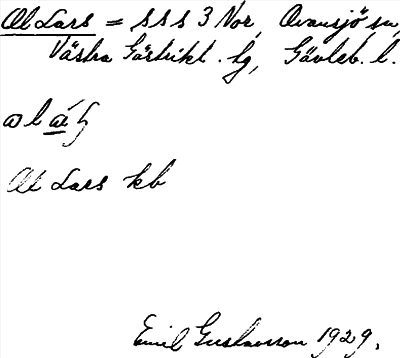 Ol Lars = s s s 3 Nor, Ovansjö sn,
Västra Gästrikl. hg, Gävleb. l.
Ol Lars kb
Emil Gustavsson 1929.